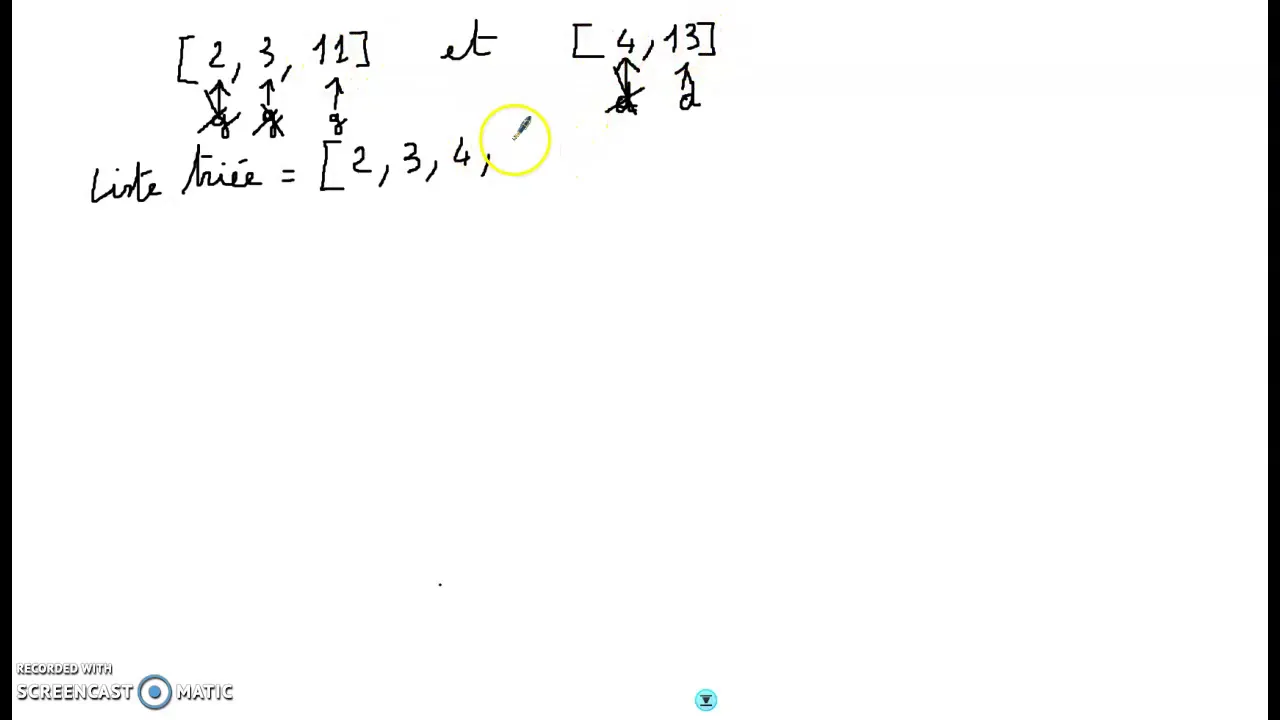 [2, 3, 11] et [4, 13]
g g g d d
Liste triée = [2, 3, 4,
RECORDED WITH
SCREENCAST MATIC